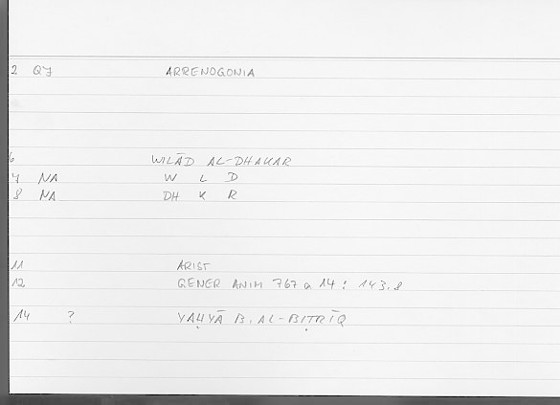 2 QY ARRENOGONIA
6 WILĀD AL-DHAKAR
7 NA W L D
8 NA DH K R
11 ARIST
12 GENER ANIM 767 a 14 : 143.8
14 ? YAḤYĀ B. AL-BIṬRĪQ